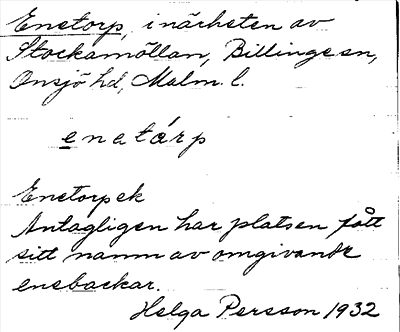 Enetorp, i närheten av
Stockamöllan, Billinge sn,
Onsjö hd, Malm. l.
enetárp
Enetorpsek
Antagligen har platsen fått
sitt namn av omgivande
enebackar.
Helga Persson 1932